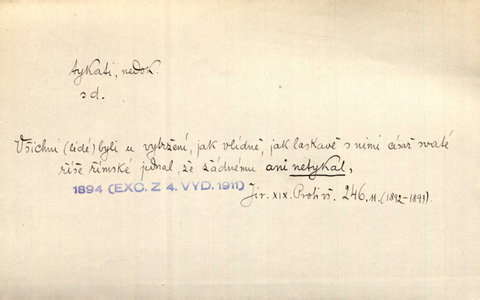 tykati, nedok.
s d.
Všichni (lidé) byli u vytržení, jak vlídně, jak laskavě s nimi císař svaté
říše římské jednal, že žádnému ani netykal,
1894 (EXC. Z 4. VYD. 1911)
Jir. XIX. Proti vš. 246.